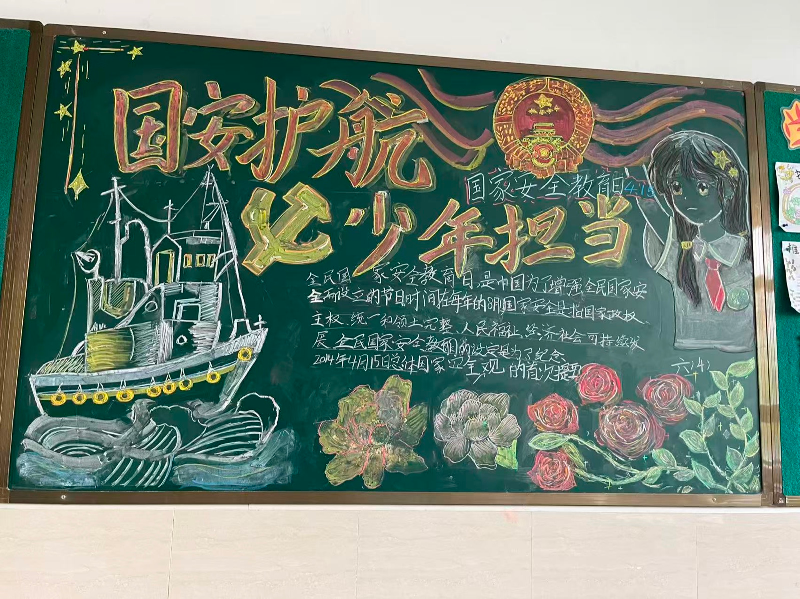 国安护航
少年担当
国家安全教育日4.15
全民国 家安全教育日,是中国为了增强全民国家安
全 设立的节日时间在每年的 国家安全是指国家政权
主权、统一和领土完整、人民福祉、经济社会可持续发
展 全民国家安全教 的设定是为了纪念
2014年4月15日总体国家 全观 的首次提
六(4)